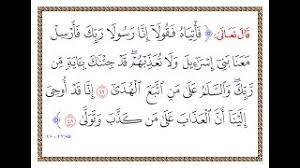 قَالَ تَعَالَى: ﴿ فَأْتِيَاهُ فَقُولَا إِنَّا رَسُولَا رَبِّكَ فَأَرْسِلْ
مَعَنَا بَنِي إِسْرَٰٓءِيلَ وَلَا تُعَذِّبْهُمْ ۖ قَدْ جِئْنَٰكَ بِـَٔايَةٍ مِّن
رَّبِّكَ ۖ وَٱلسَّلَٰمُ عَلَىٰ مَنِ ٱتَّبَعَ ٱلْهُدَىٰٓ ٤٧ إِنَّا قَدْ أُوحِيَ
إِلَيْنَآ أَنَّ ٱلْعَذَابَ عَلَىٰ مَن كَذَّبَ وَتَوَلَّىٰ ٤٨ ﴾